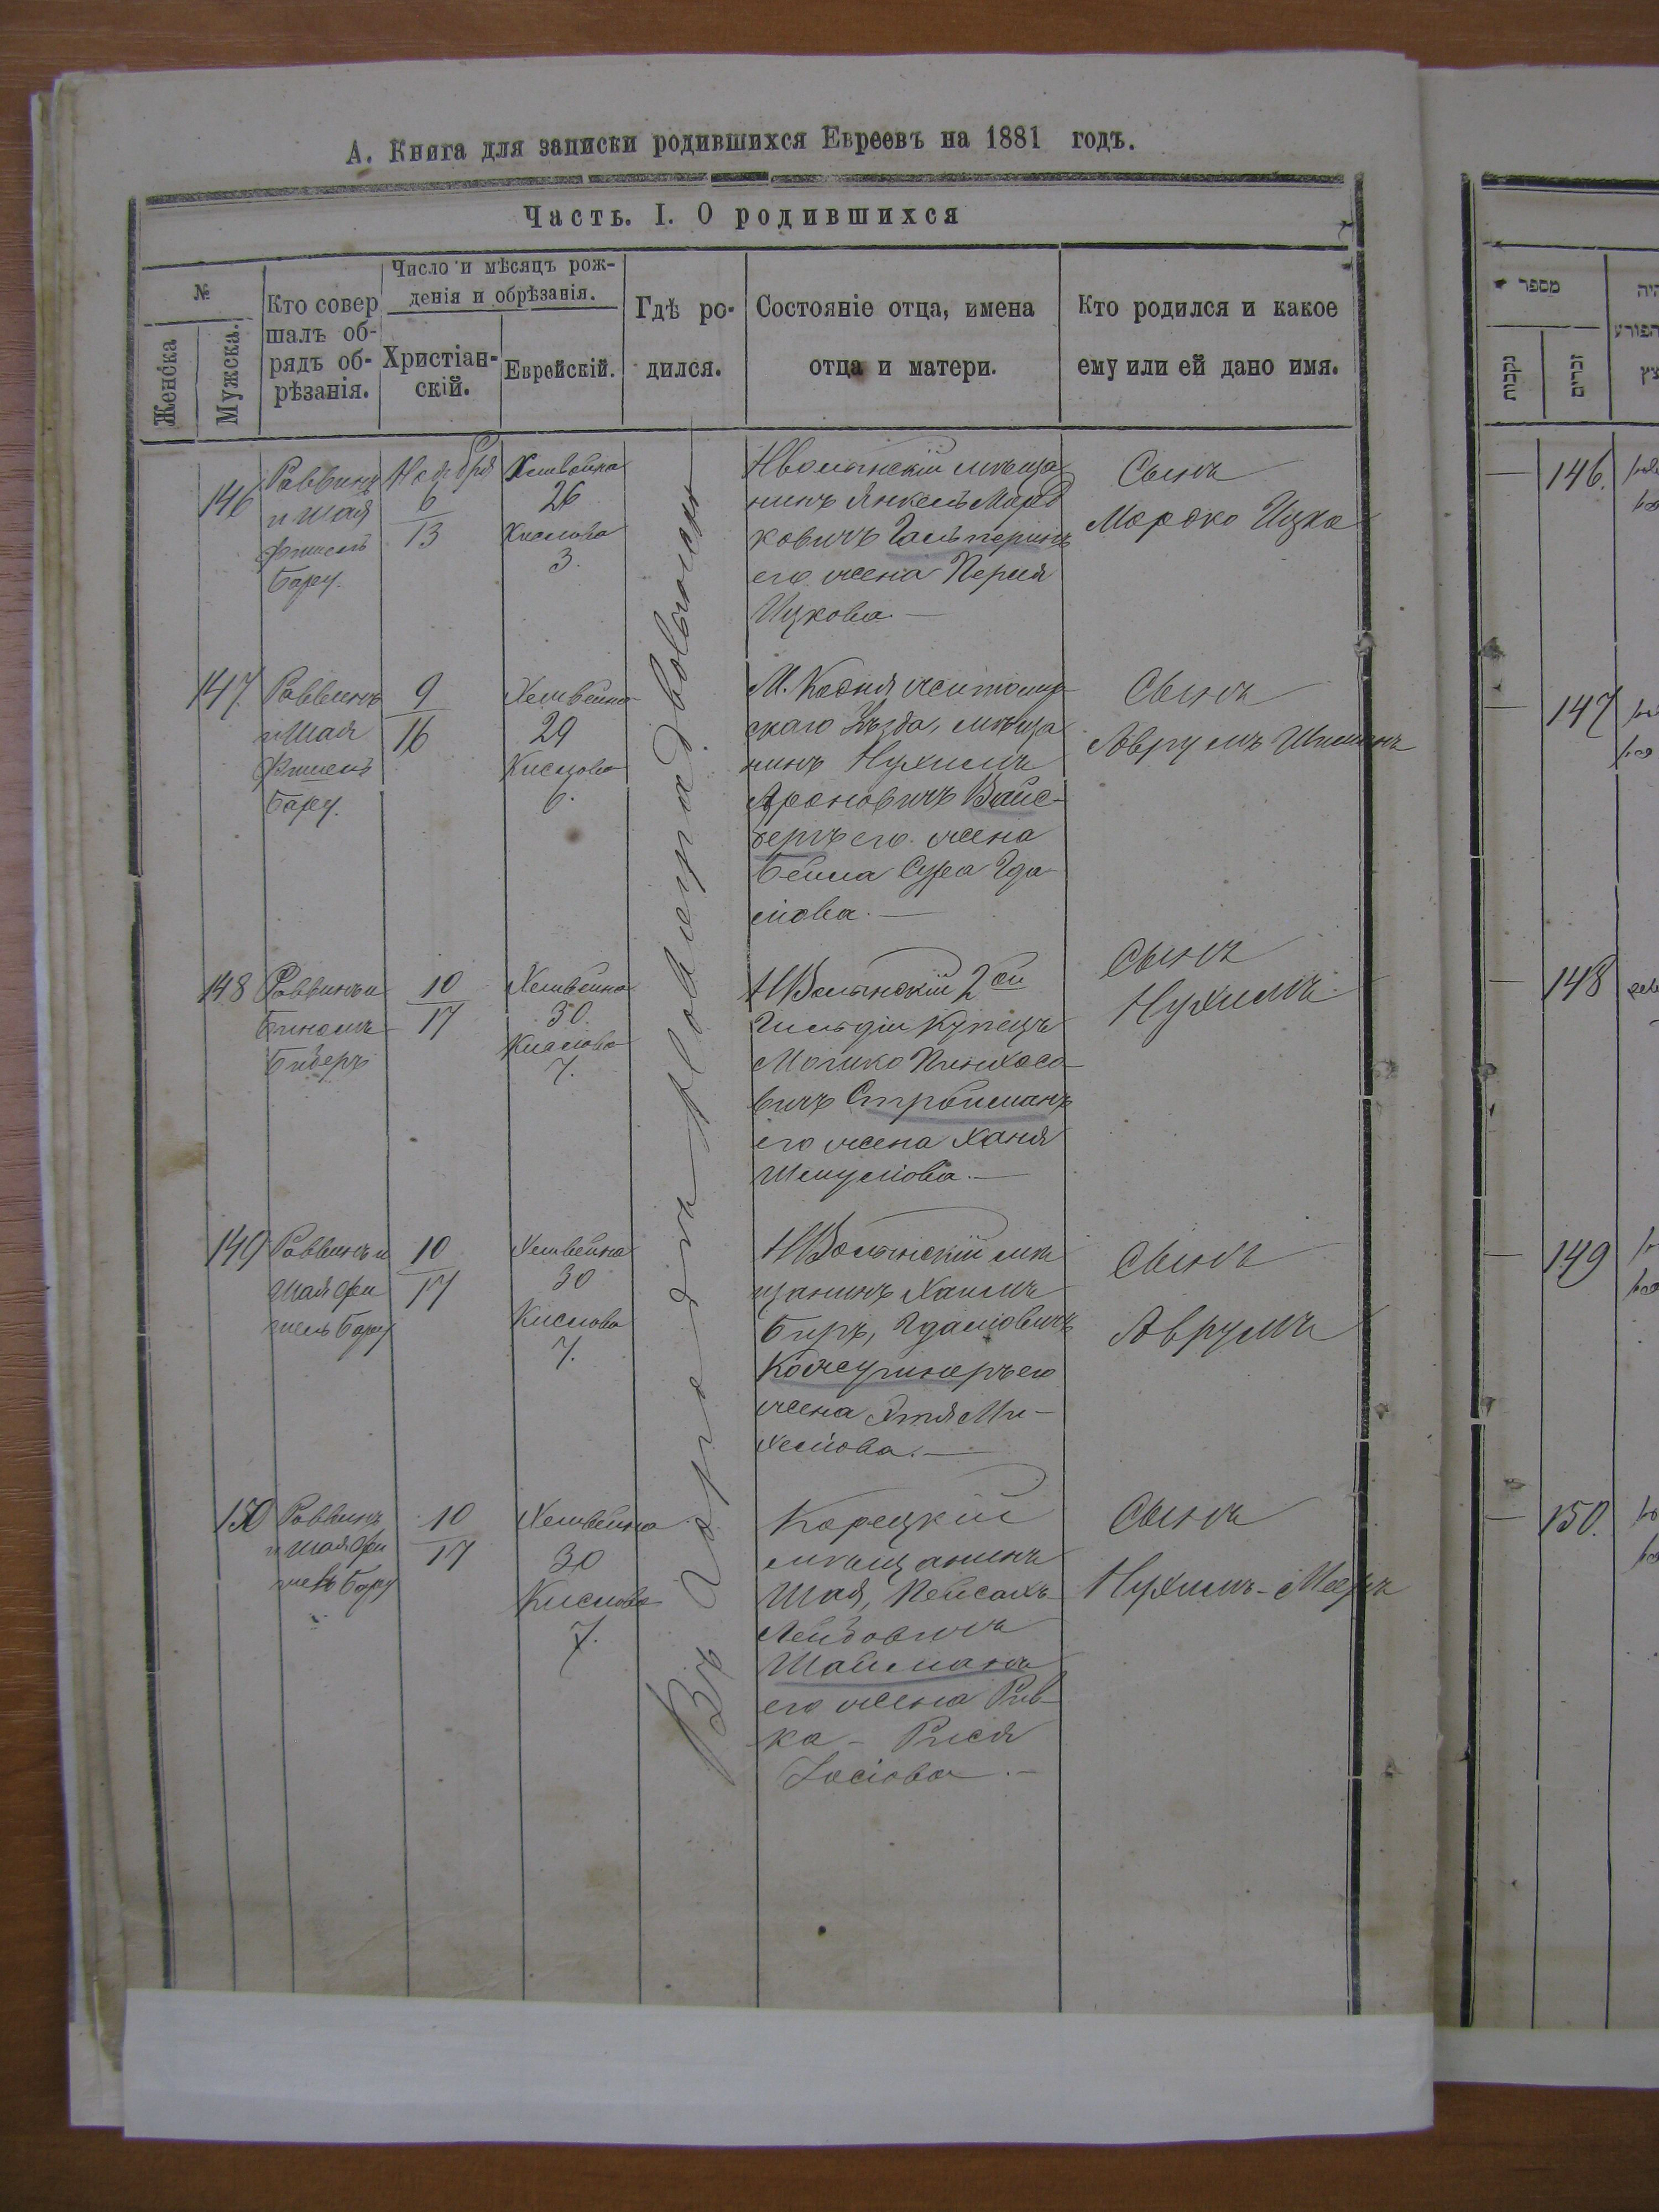 А. Книга для записки родившихся Евреевъ на 1881 годъ.
Часть. I. О родившихся
№
Женска
Мужска.
Кто совер
шалъ об-
рядъ об-
рѣзанія.
Число и мѣсяцъ рож-
денія и обрѣзанія.
Христіан-
скій.
Еврейскій.
Гдѣ ро-
дился.
Состояніе отца, имена
отца и матери.
Кто родился и какое
ему или ей дано имя.
Въ городѣ Новоградволынскѣ
146
Раввинъ
и Шая
Фишель
Бару.
Ноября
6
13
Хешвейна
26
Кислова
3.
Нволынскій мѣща
нинъ Янкель Морд
ковичъ Гальперинъ
его жена Перля
Ицкова. —
Сынъ
Мордко Ицко
147
Раввинъ
и Шая
Фишель
Бару.
9
16
Хешвейна
29
Кислова
6.
М. Кодня житомир-
скаго Уѣзда, мѣща
нинъ Нухимъ
Ароновичъ Вайс-
бергъ его жена
Бейла Сура Гда
ліова. —
Сынъ
Аврумъ
148
Раввинъ и
Бидеръ
10
17
Хешвейна
30
Кислова
7.
НВолынскій 2ой
Гильдіи Купецъ
Мошко Пинхасо-
вичъ Стройманъ
его жена Ханя
Шмуліова. —
Сынъ
Нухимъ
149
Раввинъ и
Шая Фи
шель Бару
10
17
Хешвейна
30
Кислова
7.
НВолынскій мѣ
щанинъ Хаимъ
Беръ, Гдаліовичъ
Кожушнеръ его
жена Этя Ми-
хеліова. —
Сынъ
Аврумъ
150
Раввинъ
и Шая Фи
шель Бару
10
17
Хешвейна
30
Кислова
7.
Корецкій
мѣщанинъ
Шая, Пейсахъ
Лейбовичъ
Шайманъ
его жена Рив-
ка - Рися
Іосіова. —
Сынъ
Нухимъ-Мееръ
מספר
נקבות
זכרים
— 146.
— 147
— 148
— 149
— 150.